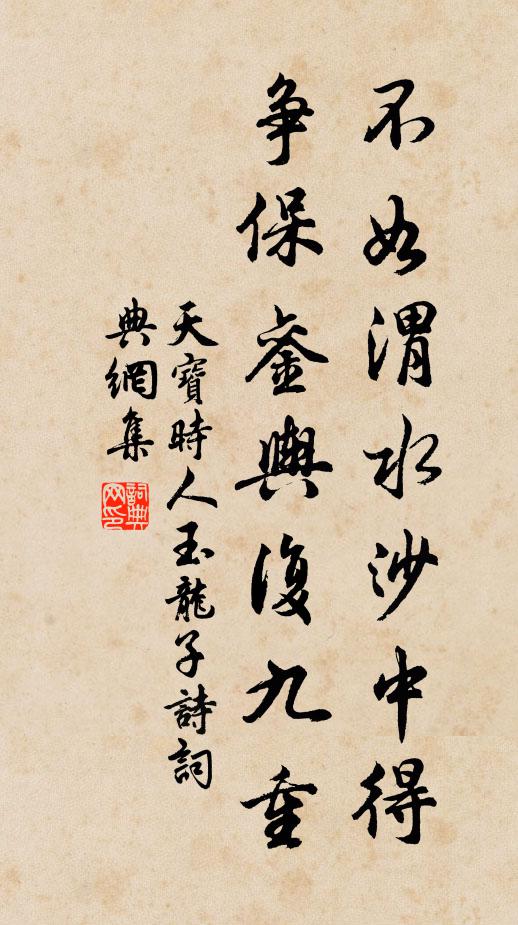 不如渭水沙中得
争保銮輿復九重
天寶時人玉龍子詩詞
典網集
詞典网印